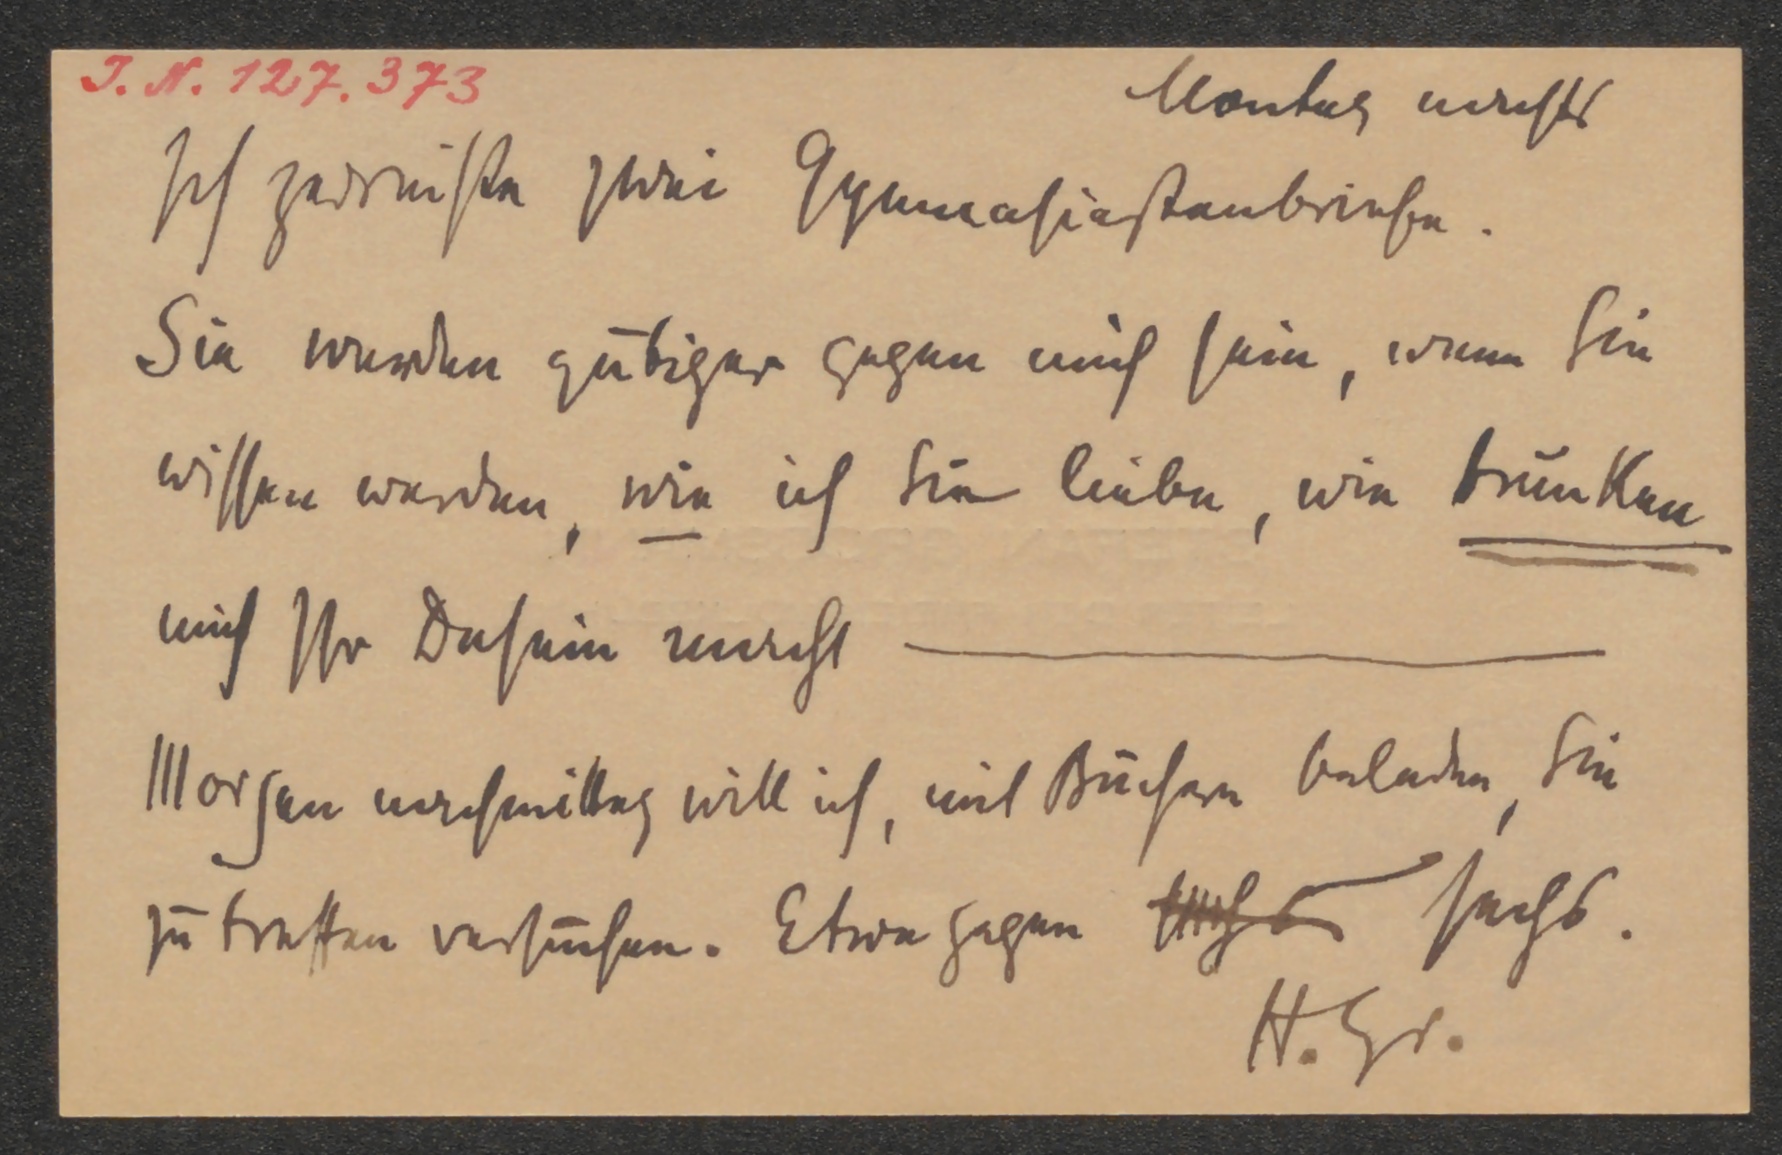 I. N. 127.373
Montag nachts
Ich zerreiße zwei Gymnasiastenbriefe.
Sie werden gütiger gegen mich sein, wenn Sie
wissen werden, wie ich Sie liebe, wie trunken
mich Ihr Dasein macht —
Morgen nachmittag will ich, mit Büchern beladen, Sie
zu treffen versuchen. Etwa gegen sechs.
H. Gr.